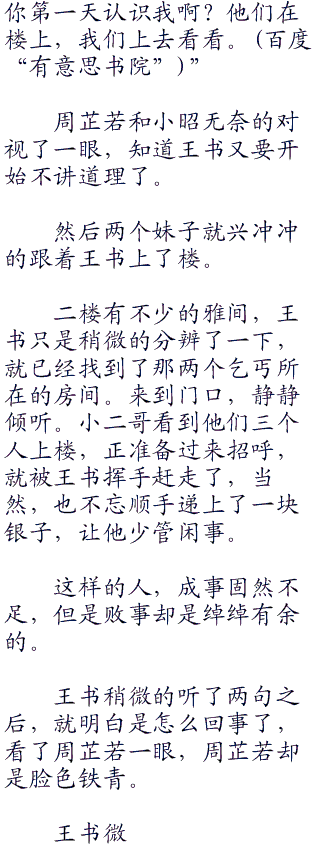 你第一天认识我啊？他们在
楼上，我们上去看看。(百度
“有意思书院”)”
周芷若和小昭无奈的对
视了一眼，知道王书又要开
始不讲道理了。
然后两个妹子就兴冲冲
的跟着王书上了楼。
二楼有不少的雅间，王
书只是稍微的分辨了一下，
就已经找到了那两个乞丐所
在的房间。来到门口，静静
倾听。小二哥看到他们三个
人上楼，正准备过来招呼，
就被王书挥手赶走了，当
然，也不忘顺手递上了一块
银子，让他少管闲事。
这样的人，成事固然不
足，但是败事却是绰绰有余
的。
王书稍微的听了两句之
后，就明白是怎么回事了，
看了周芷若一眼，周芷若却
是脸色铁青。
王书微